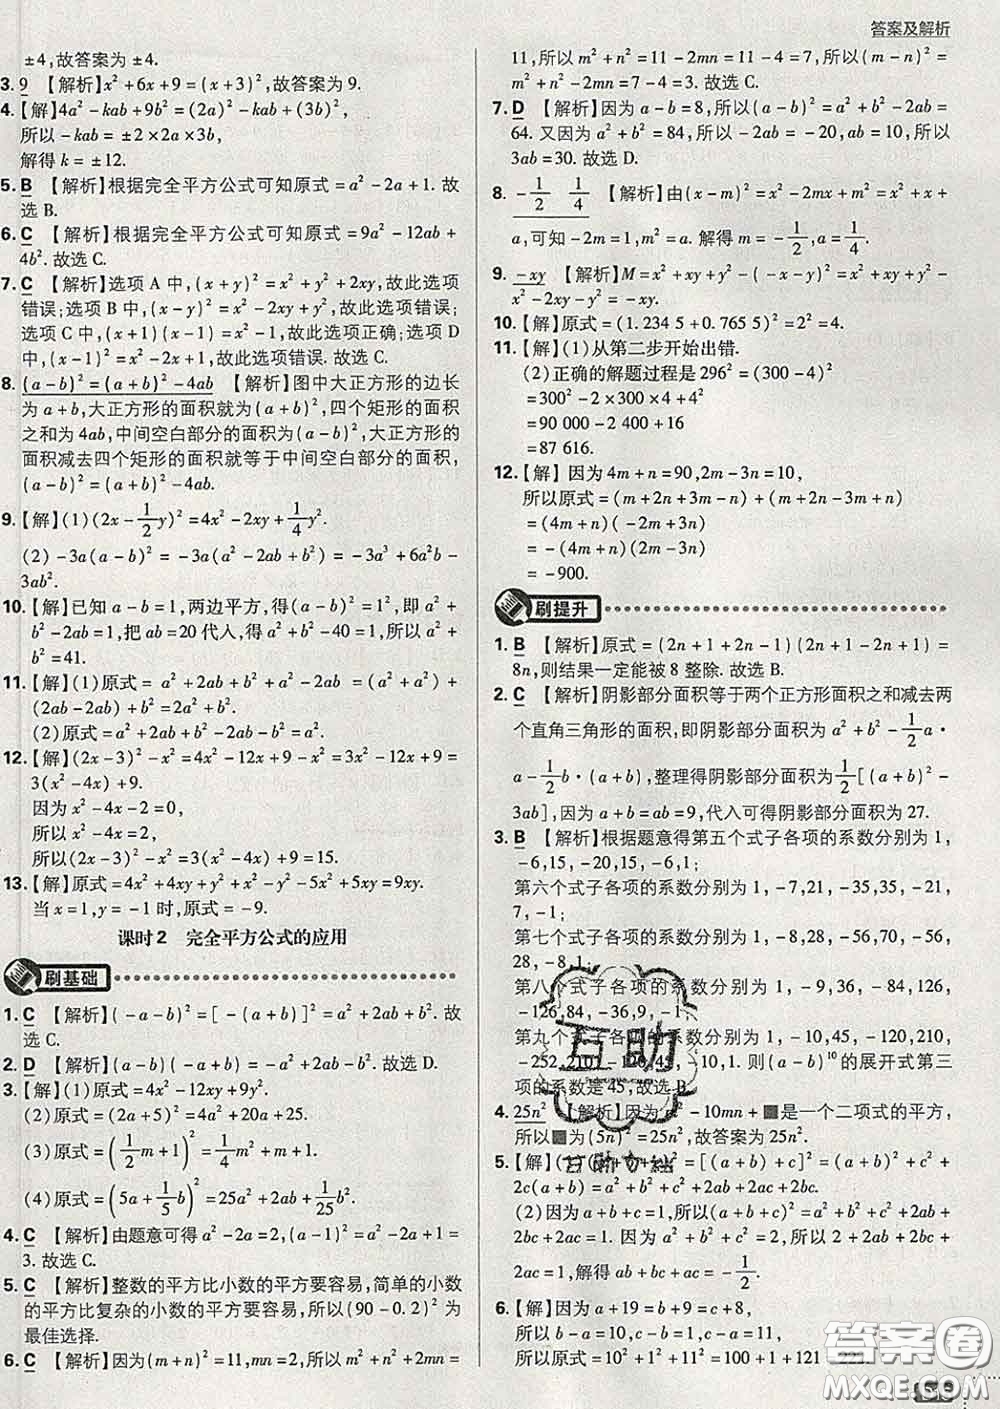 答案及解析
±4,故答案为±4.
3. 9 【解析】x²+6x+9=(x+3)²,故答案为9.
4. 【解】4a²-kab+9b²=(2a)²-kab+(3b)²,
所以-kab=±2×2a×3b,
解得k=±12.
5. B 【解析】根据完全平方公式可知原式=a²-2a+1.故
选B.
6. C 【解析】根据完全平方公式可知原式=9a²-12ab+
4b².故选C.
7. C 【解析】选项A中,(x+y)²=x²+y²+2xy,故此选项
错误;选项B中,(x-y)²=x²-2xy+y²,故此选项错误;
选项C中,(x+1)(x-1)=x²-1,故此选项正确;选项D
中,(x-1)²=x²-2x+1,故此选项错误.故选C.
8. (a-b)²=(a+b)²-4ab 【解析】图中大正方形的边长
为a+b,大正方形的面积就为(a+b)²,四个矩形的面积
之和为4ab,中间空白部分的面积为(a-b)².大正方形
的面积减去四个矩形的面积就等于中间空白部分的面积,
(a-b)²=(a+b)²-4ab.
9. 【解】(1)(2x-1/2y)²=4x²-2xy+1/4y².
(2)-3a(a-b)²=-3a(a²-2ab+b²)=-3a³+6a²b-
3ab².
10. 【解】已知a-b=1,两边平方,得(a-b)²=1²,即a²+
b²-2ab=1,把ab=20代入,得a²+b²-40=1,所以a²+
b²=41.
11. 【解】(1)原式=a²+2ab+b²+a²-2ab=(a²+a²)+
(2ab-2ab)+b²=2a²+b².
(2)原式=a²+2ab+b²-2ab-b²=a².
12. 【解】(2x-3)²-x²=4x²-12x+9-x²=3x²-12x+9=
3(x²-4x)+9.
因为x²-4x-2=0,
所以x²-4x=2,
所以(2x-3)²-x²=3(x²-4x)+9=15.
13. 【解】原式=4x²+4xy+y²+x²-y²-5x²+5xy=9xy.
当x=1,y=-1时,原式=-9.
课时2 完全平方公式的应用
刷基础
1. C 【解析】(-a-b)²=[-(a+b)]²=a²+2ab+b².故
选C.
2. D 【解析】(a-b)(-a+b)=-a²+2ab-b².故选D.
3. 【解】(1)原式=4x²-12xy+9y².
(2)原式=(2a+5)²=4a²+20a+25.
(3)原式=(1/2m+1)²=1/4m²+m+1.
(4)原式=(5a+1/5b)²=25a²+2ab+1/25b².
4. C 【解析】由题意可得a²-2a=2,(a-1)²=a²-2a+1=
3.故选C.
5. C 【解析】整数的平方比小数的平方要容易,简单的小数
的平方比复杂的小数的平方要容易,所以(90-0.2)²为
最佳选择.
6. C 【解析】因为(m+n)²=11,mn=2,所以m²+n²+2mn=
11,所以m²+n²=11-2mn=11-4=7,所以(m-n)²=
m²+n²-2mn=7-4=3.故选C.
7. D 【解析】因为a-b=8,所以(a-b)²=a²+b²-2ab=
64.又因为a²+b²=84,所以-2ab=-20,ab=10,所以
3ab=30.故选D.
8. -1/2 1/4 【解析】由(x-m)²=x²-2mx+m²=x²+x+
a,可知-2m=1,m²=a.解得m=-1/2,a=1/4.
9. -xy 【解析】M=x²+xy+y²-(-x-y)²=x²+xy+y²-
x²-2xy-y²=-xy.
10. 【解】原式=(1.234 5+0.765 5)²=2²=4.
11. 【解】(1)从第二步开始出错.
(2)正确的解题过程是296²=(300-4)²
=300²-2×300×4+4²
=90 000-2 400+16
=87 616.
12. 【解】因为4m+n=90,2m-3n=10,
所以原式=(m+2n+3m-n)(m+2n-3m+n)
=(4m+n)(-2m+3n)
=-(4m+n)(2m-3n)
=-900.
刷提升
1. B 【解析】原式=(2n+1+2n-1)(2n+1-2n+1)=
8n,则结果一定能被8整除.故选B.
2. C 【解析】阴影部分面积等于两个正方形面积之和减去两
个直角三角形的面积,即阴影部分面积为a²+b²-1/2a·
a-1/2b·(a+b),整理得阴影部分面积为1/2[(a+b)²-
3ab],因为a+b=ab=9,代入可得阴影部分面积为27.
3. B 【解析】根据题意得第五个式子各项的系数分别为1,
-6,15,-20,15,-6,1;
第六个式子各项的系数分别为1,-7,21,-35,35,-21,
7,-1;
第七个式子各项的系数分别为1,-8,28,-56,70,-56,
28,-8,1;
第八个式子各项的系数分别为1,-9,36,-84,126,
-126,84,-36,9,-1;
第九个式子各项的系数分别为1,-10,45,-120,210,
-252,210,-120,45,-10,1.则(a-b)¹⁰的展开式第三
项的系数是45,故选B.
4. 25n² 【解析】因为m²-10mn+■是一个二项式的平方,
所以■为(5n)²=25n²,故答案为25n².
5. 【解】(1)(a+b+c)²=[(a+b)+c]²=(a+b)²+c²+
2(a+b)c=a²+b²+c²+2ab+2ac+2bc.
(2)因为a+b+c=1,所以(a+b+c)²=1.因为(a+b+
c)²=a²+b²+c²+2ab+2bc+2ac,a²+b²+c²=2,所以a²+b²+c²+2ab+
2bc+2ac=2+2ab+2bc+
2ac=1,解得ab+bc+ac=-1/2.
6. 【解】因为a+19=b+9=c+8,
所以b-a=10,b-c=-1,c-a=11.
所以原式=10²+1²+11²=100+1+121=222.
互助
答案圈
MXQE.COM